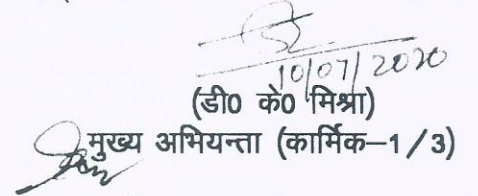 10/07/2020
(डी0 के0 मिश्रा)
मुख्य अभियन्ता (कार्मिक–1/3)